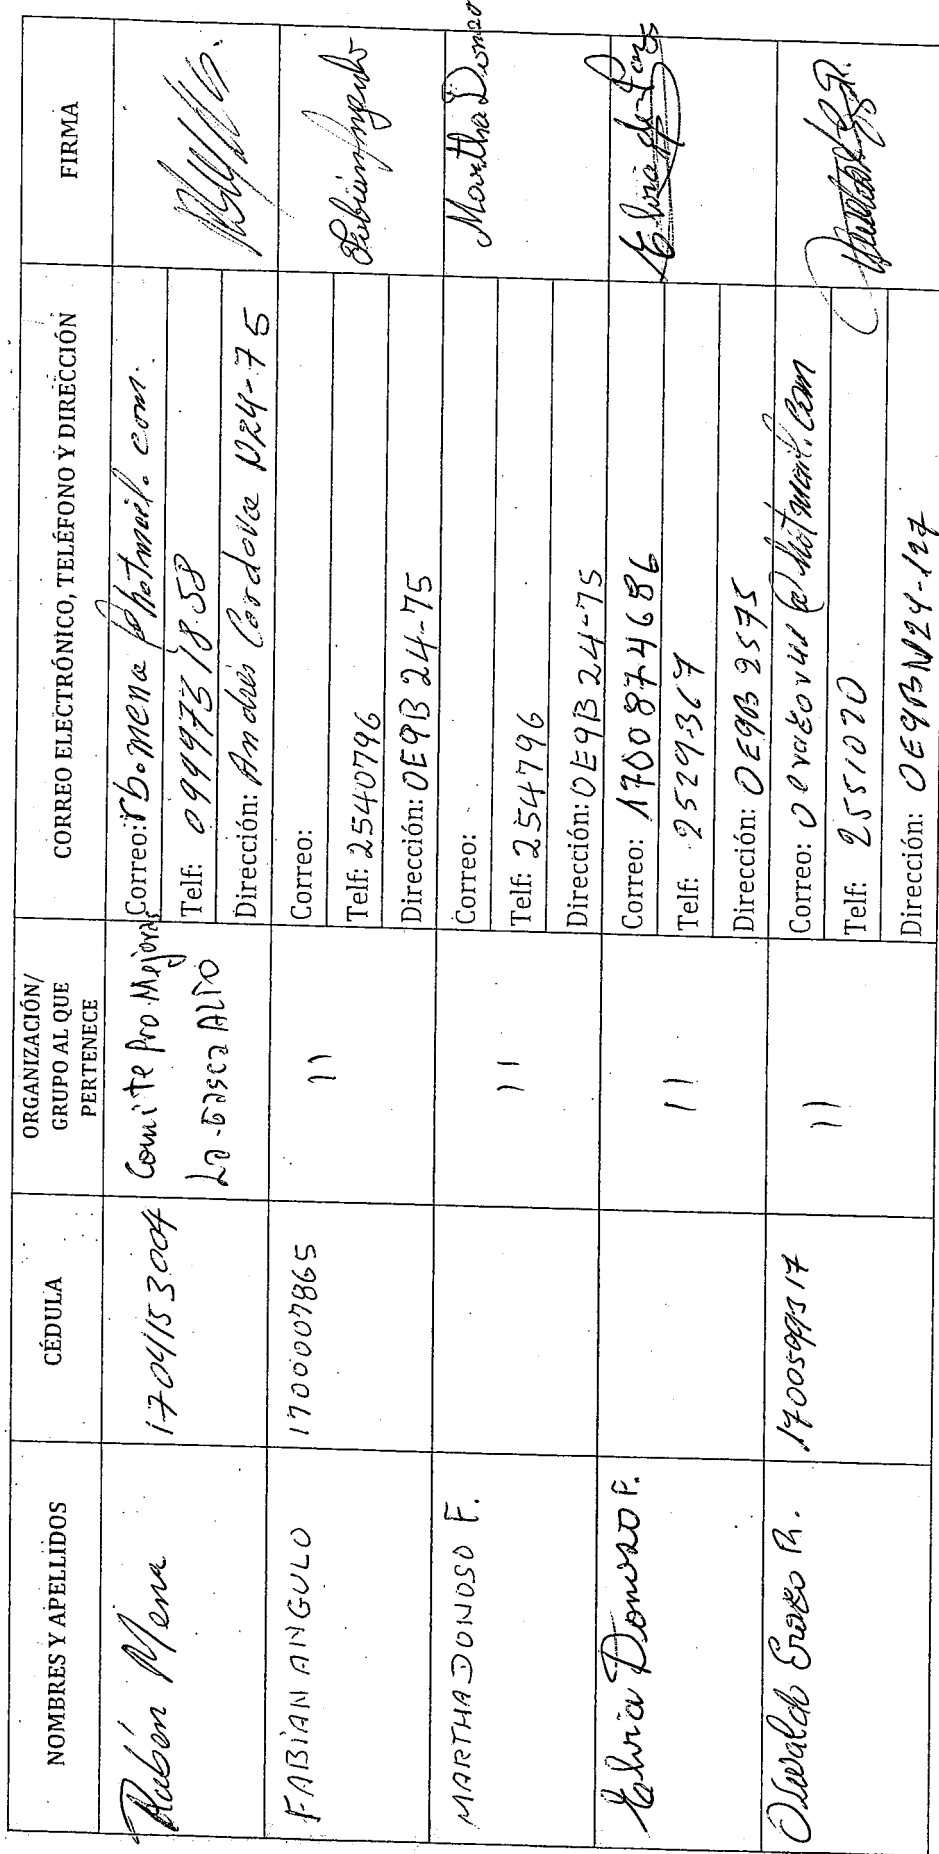 NOMBRES Y APELLIDOS CÉDULA ORGANIZACIÓN/ GRUPO AL QUE PERTENECE CORREO ELECTRÓNICO, TELÉFONO Y DIRECCIÓN FIRMA
Rubén Mena 1704153004 Comite Pro Mejoras La-Gasca ALTO
Correo: rbomena@hotmail.com.
Telf: 099973 18 58
Dirección: Andrés Cordova N24-75
FABIAN ANGULO 1700007865 11
Correo:
Telf: 2540796
Dirección: OE9B 24-75
Fabian Angulo
MARTHA DONOSO F. 11
Correo:
Telf: 254796
Dirección: OE9B 24-75
Martha Donoso
Elvia Donoso F. 11
Correo: 1700874686
Telf: 2529-367
Dirección: OE9B 2575
Elvia de Paz
Oswaldo Erazo R. 11
Correo: @hotmail.com
Telf: 2551070
Dirección: OE9B N24-127